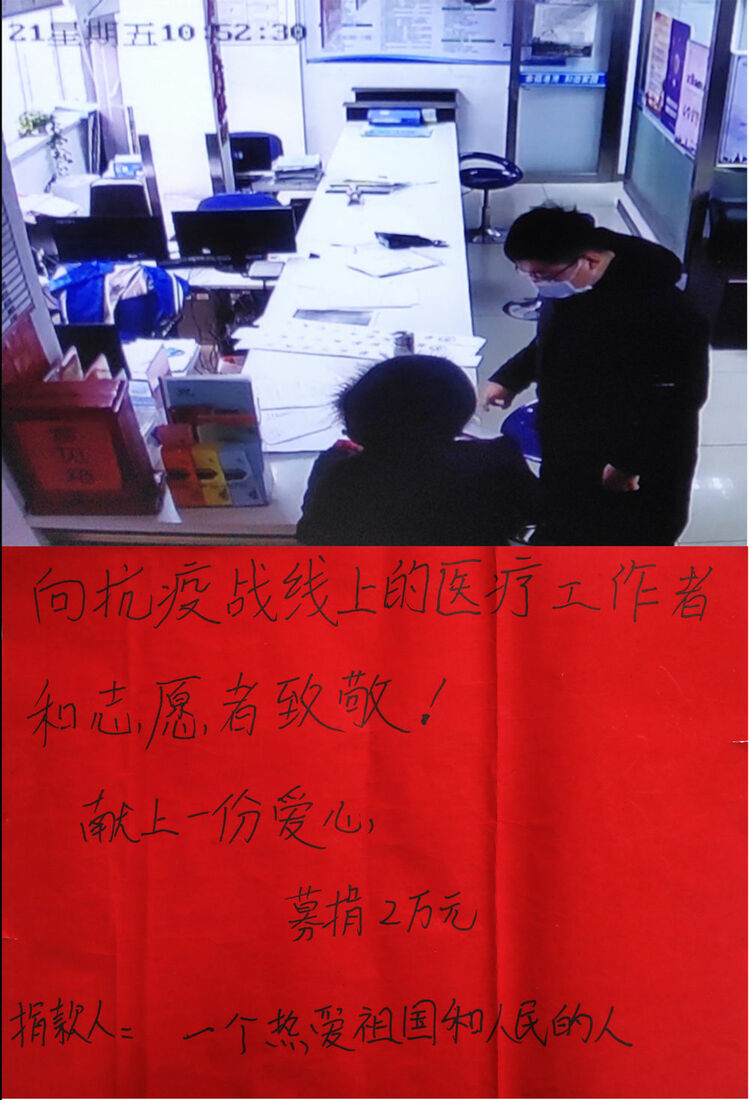 21星期五10:52:30
向抗疫战线上的医疗工作者
和志愿者致敬！
献上一份爱心，
募捐2万元
捐款人：一个热爱祖国和人民的人